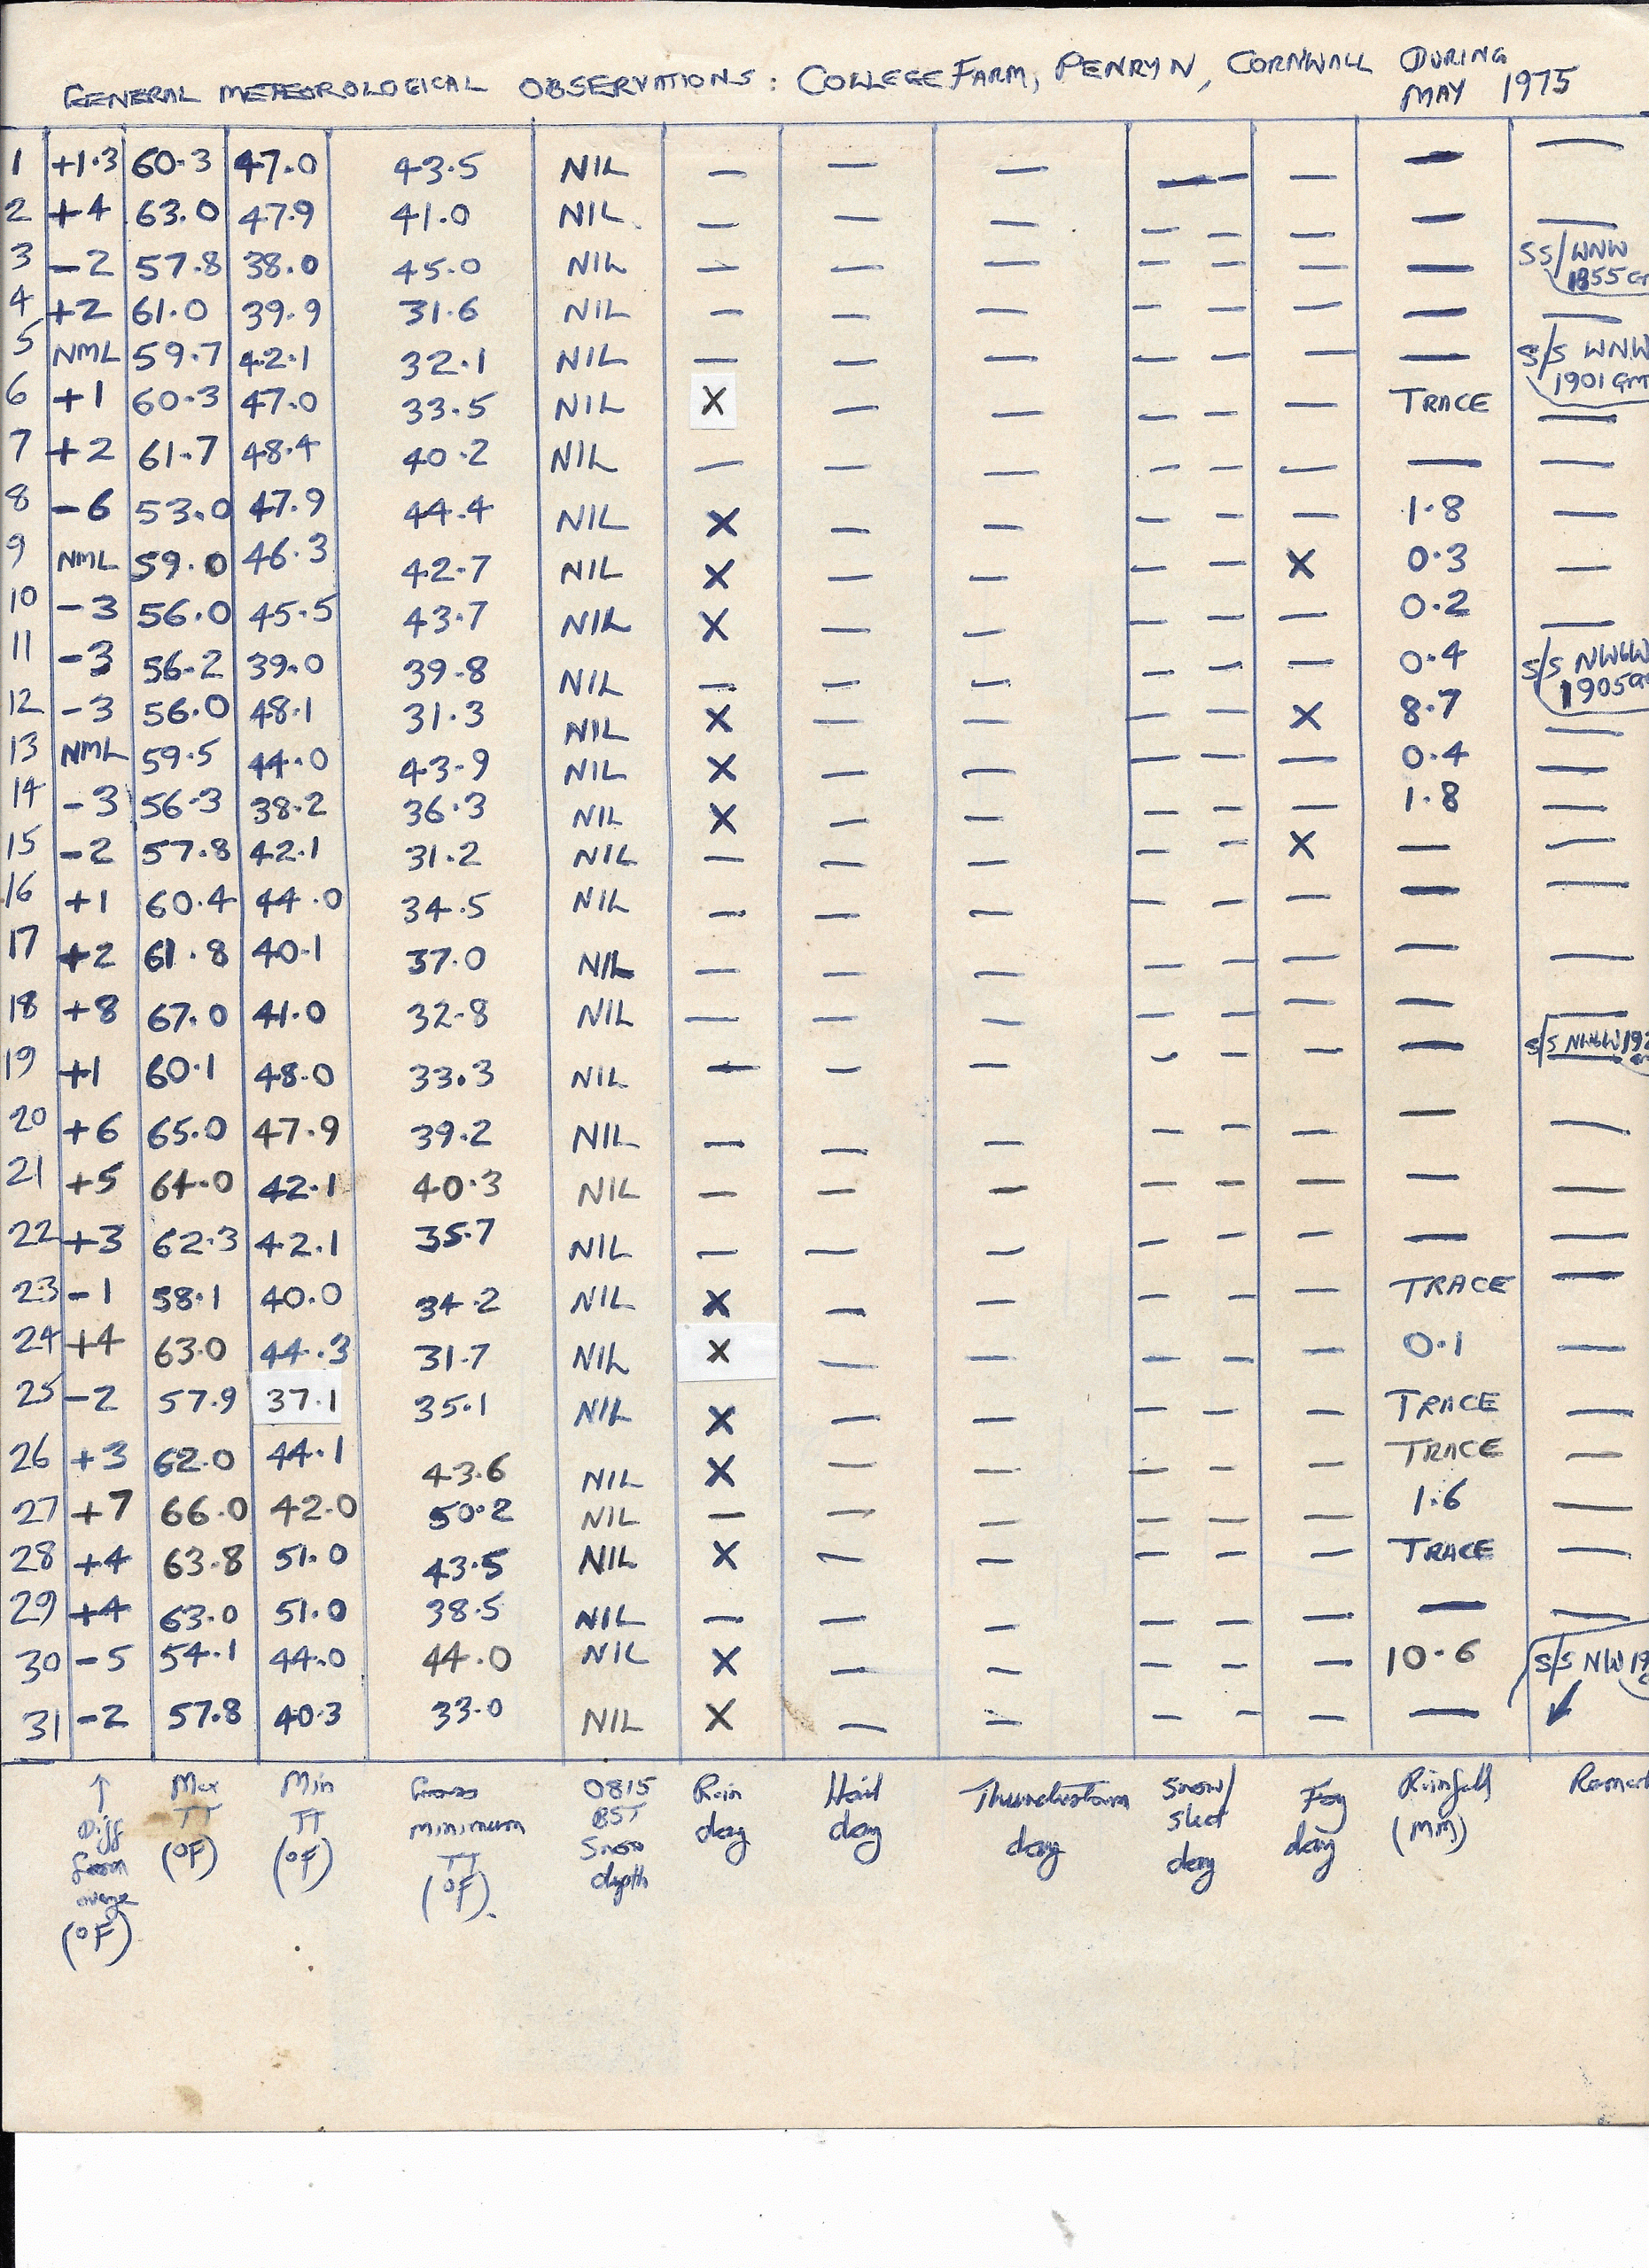 GENERAL METEOROLOGICAL OBSERVATIONS: COLLEGE FARM, PENRYN, CORNWALL DURING
MAY 1975
1 +1.3 60.3 47.0 43.5 NIL — — — — — — — —
2 +4 63.0 47.9 41.0 NIL — — — — — — — —
3 -2 57.8 38.0 45.0 NIL — — — — — — — SS/WNW
1855
4 +2 61.0 39.9 31.6 NIL — — — — — — — —
5 NML 59.7 42.1 32.1 NIL — — — — — — — S/S WNW
1901 GM
6 +1 60.3 47.0 33.5 NIL X — — — — — TRACE —
7 +2 61.7 48.4 40.2 NIL — — — — — — — —
8 -6 53.0 47.9 44.4 NIL X — — — — — 1.8 —
9 NML 59.0 46.3 42.7 NIL X — — — — X 0.3 —
10 -3 56.0 45.5 43.7 NIL X — — — — — 0.2 —
11 -3 56.2 39.0 39.8 NIL — — — — — — 0.4 S/S NWbW
1905
12 -3 56.0 48.1 31.3 NIL X — — — — X 8.7 —
13 NML 59.5 44.0 43.9 NIL X — — — — — 0.4 —
14 -3 56.3 38.2 36.3 NIL X — — — — — 1.8 —
15 -2 57.8 42.1 31.2 NIL — — — — — X — —
16 +1 60.4 44.0 34.5 NIL — — — — — — — —
17 +2 61.8 40.1 37.0 NIL — — — — — — — —
18 +8 67.0 41.0 32.8 NIL — — — — — — — —
19 +1 60.1 48.0 33.3 NIL — — — — — — — S/S NWbW 192
20 +6 65.0 47.9 39.2 NIL — — — — — — — —
21 +5 64.0 42.1 40.3 NIL — — — — — — — —
22 +3 62.3 42.1 35.7 NIL — — — — — — — —
23 -1 58.1 40.0 34.2 NIL X — — — — — TRACE —
24 +4 63.0 44.3 31.7 NIL X — — — — — 0.1 —
25 -2 57.9 37.1 35.1 NIL X — — — — — TRACE —
26 +3 62.0 44.1 43.6 NIL X — — — — — TRACE —
27 +7 66.0 42.0 50.2 NIL — — — — — — 1.6 —
28 +4 63.8 51.0 43.5 NIL X — — — — — TRACE —
29 +4 63.0 51.0 38.5 NIL — — — — — — — —
30 -5 54.1 44.0 44.0 NIL X — — — — — 10.6 S/S NW 19
31 -2 57.8 40.3 33.0 NIL X — — — — — —
↑ Diff from average (°F)
Max TT (°F)
Min TT (°F)
Grass minimum TT (°F).
0815 BST Snow depth
Rain day
Hail day
Thunderstorm day
Snow/ sleet day
Fog day
Rainfall (MM)
Remark